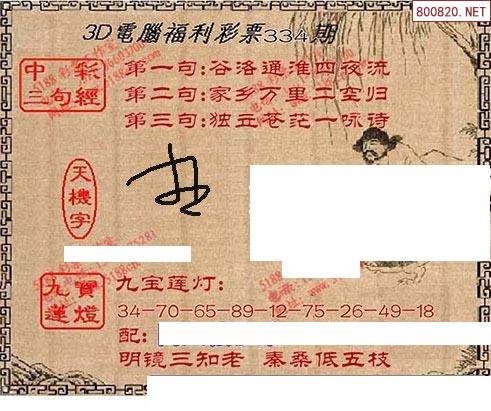 800820.NET
3D電腦福利彩票334期
中彩
三句經
第一句:谷洛通淮四夜流
第二句:家乡万里二空归
第三句:独立苍茫一咏诗
天機字
九寶
蓮燈
九宝莲灯:
34-70-65-89-12-75-26-49-18
配:
明镜三知老 秦桑低五枝